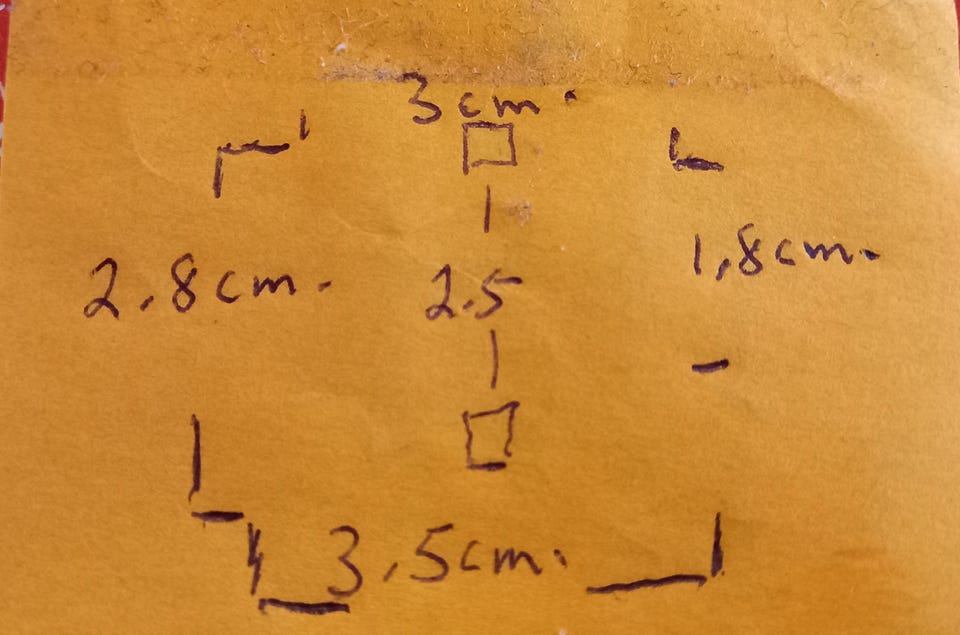 3 cm.
2.8 cm. 2.5 1,8 cm.
3.5 cm.